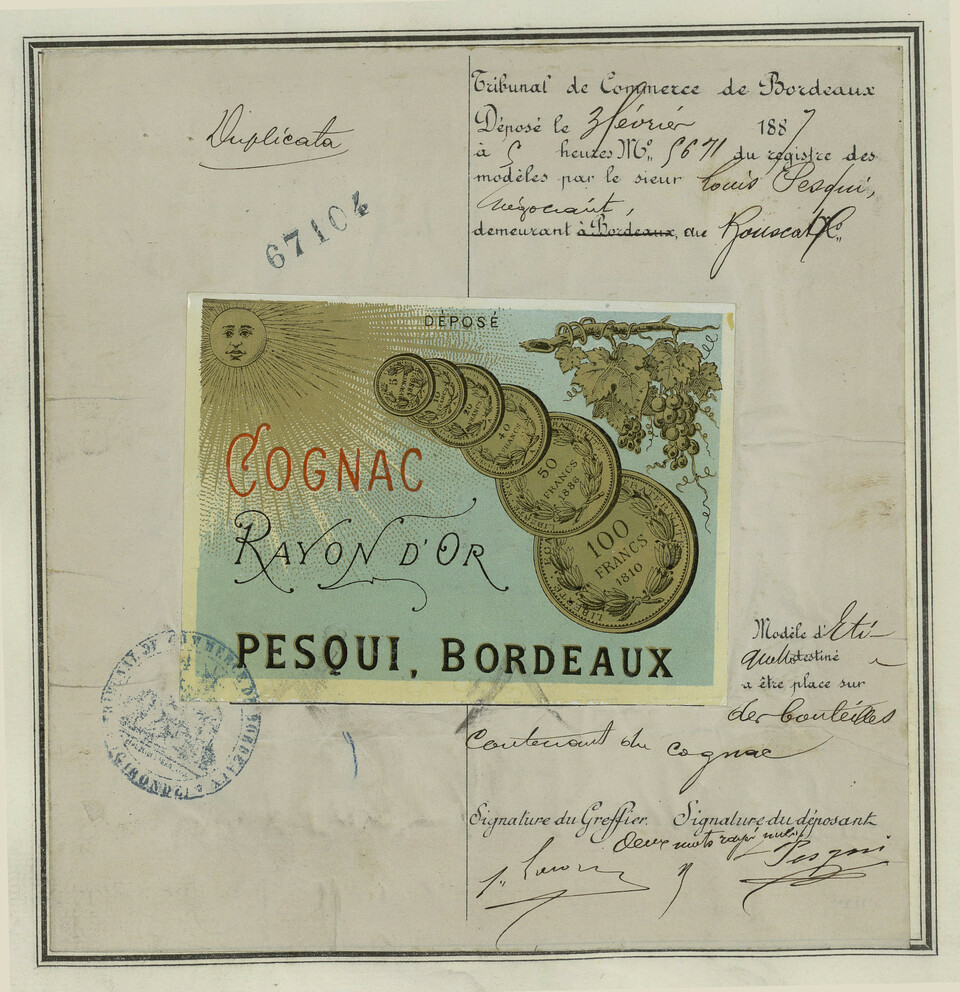 Duplicata
67104
Tribunal de Commerce de Bordeaux
Déposé le 3 février 1887
à 5 heures Nº 5671 du registre des
modèles par le sieur Louis Pesqui,
négociant,
demeurant à Bordeaux, au Bouscat
DÉPOSÉ
5
10
20
40
FRANCS
50
FRANCS
1888
100
FRANCS
1810
COGNAC
RAYON D'OR
PESQUI, BORDEAUX
TRIBUNAL DE COMMERCE DE BORDEAUX
GIRONDE
Modèle d'Eti-
quette destiné
a être place sur
des bouteilles
contenant du cognac
Signature du Greffier. Signature du déposant
deux mots rayés nuls
Pesqui